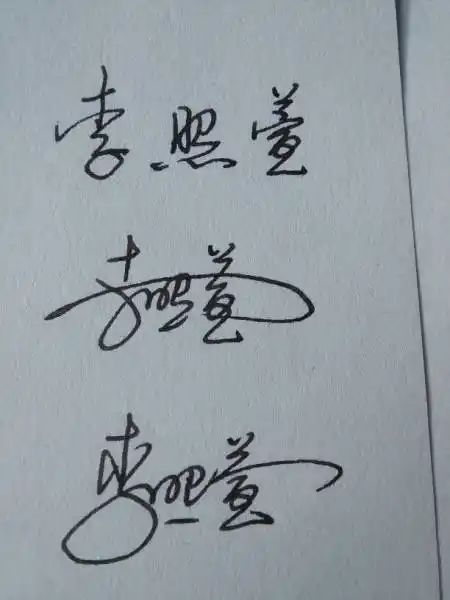 李照萱
李照萱
李照萱